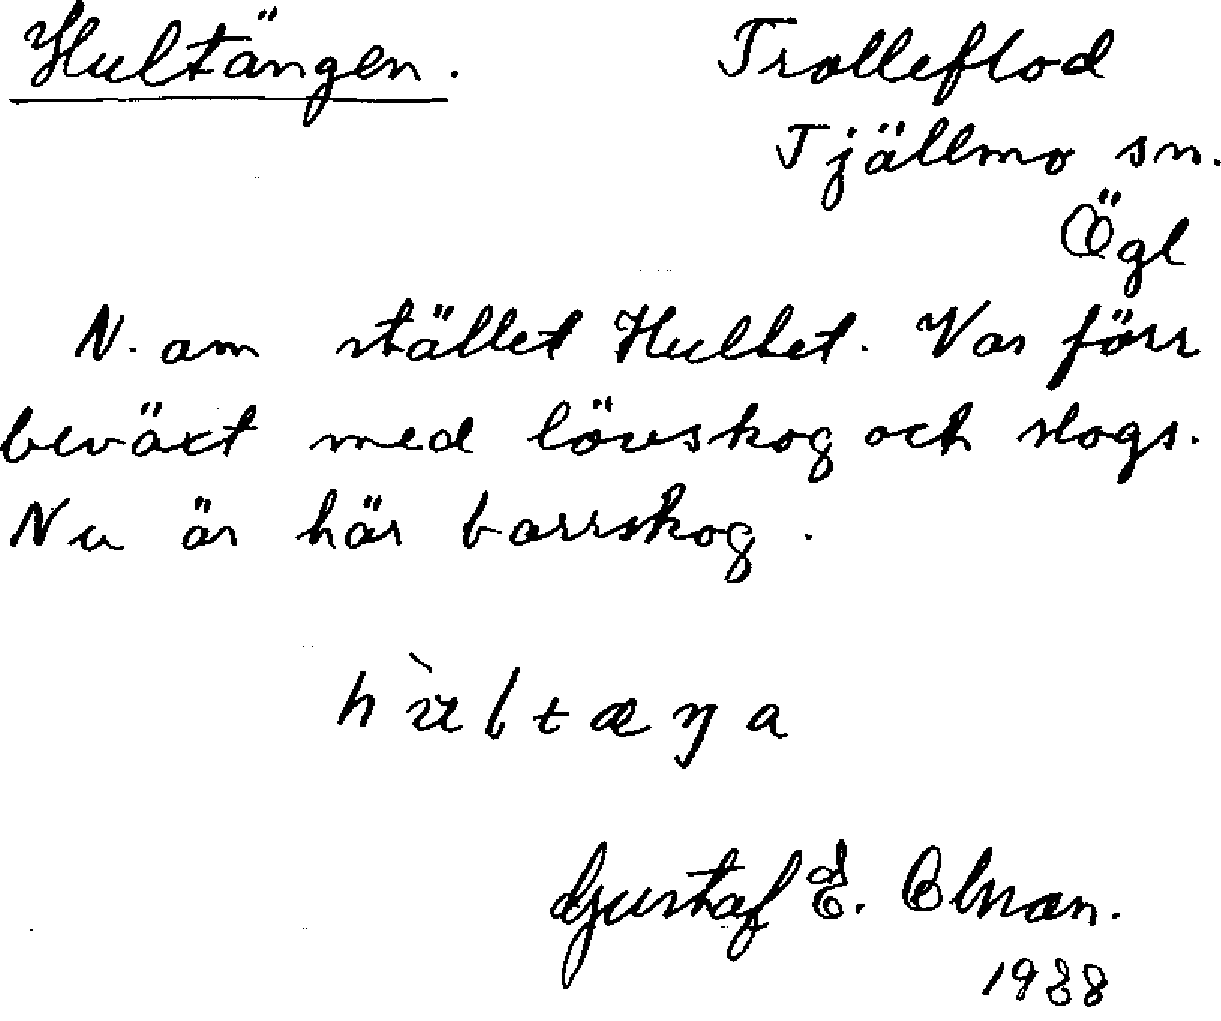 Hultängen. Trolleflod
Tjällmo sn.
Ögl
N. om stället Hultet. Var förr
beväxt med lövskog och slogs.
Nu är här barrskog.
hùltæŋa
Gustaf E.
1938